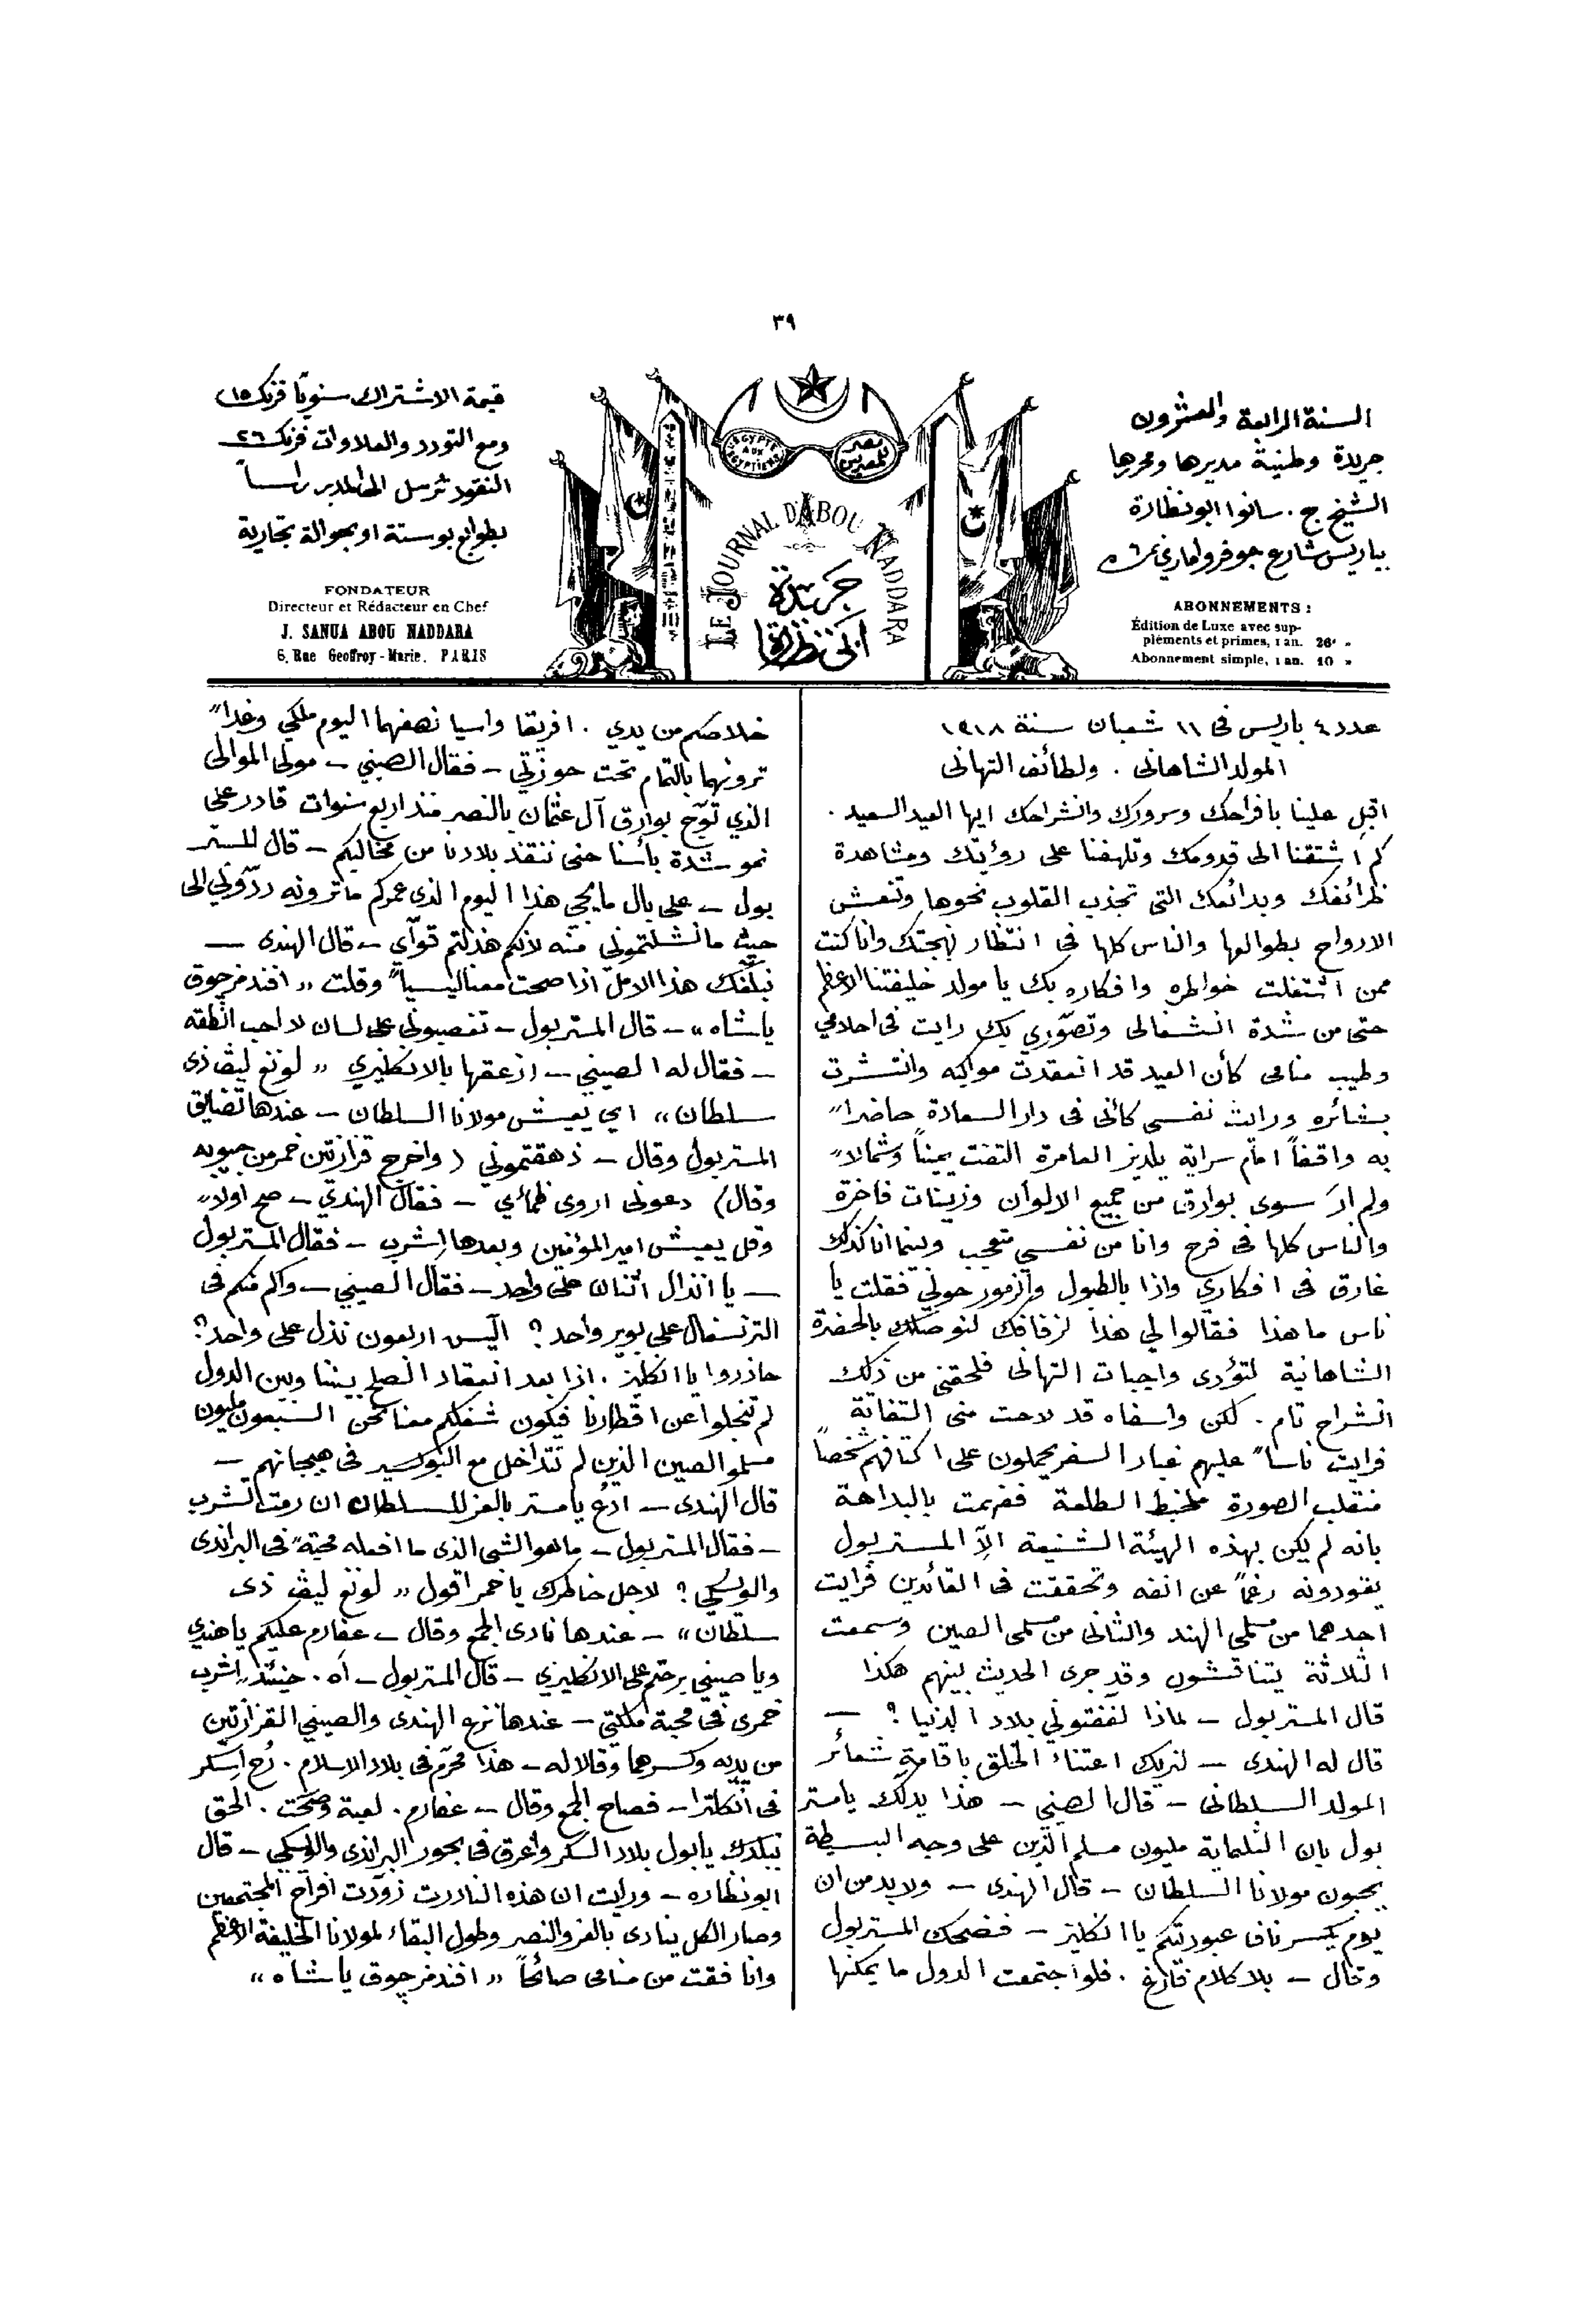 ٣٩
السنة الرابعة والعشرون
جريدة وطنية مديرها ومحررها
الشيخ ج. سانوا ابونظارة
بباريس شارع جوفروا ماري نمرة ٦
ABONNEMENTS :
Édition de Luxe avec sup-
pléments et primes, 1 an. 26 »
Abonnement simple, 1 an. 10 »
ÉGYPTE AUX ÉGYPTIENS
مصر للمصريين
LE JOURNAL D'ABOU NADDARA
جريدة
ابي نظارة
قيمة الاشتراك سنويًا فرنك ١٥
ومع التورد والعلاوات فرنك ٢٦
النقود ترسل الى المدير راساً
بطوابع بوستة او بحوالة تجارية
FONDATEUR
Directeur et Rédacteur en Chef
J. SANUA ABOU NADDARA
6, Rue Geoffroy-Marie. PARIS
عدد ٤ باريس فى ١١ شعبان سنة ١٣١٨
المولد الشاهانى . ولطائف التهانى
اقبل علينا بافراحك وسرورك وانشراحك ايها العيد السعيد .
كم اشتقنا الى قدومك وتلهفنا على رؤيتك ومشاهدة
ظرائفك وبدائعك التى تجذب القلوب نحوها وتنعش
الارواح بطوالعها والناس كلها فى انتظار بهجتك وانا كنت
ممن اشتغلت خواطره وافكاره بك يا مولد خليفتنا الاعظم
حتى من شدة انشغالى وتصوّري بك رايت فى احلامي
وطيب منامى كأن العيد قد انعقدت مواكبه وانتشرت
بشائره ورايت نفسى كأنى فى دار السعادة حاضراً
به واقفاً امام سراية يلديز العامرة التفت يميناً وشمالاً
ولم ارَ سوى بوارق من جميع الالوان وزينات فاخرة
والناس كلها فى فرح وانا من نفسي متعجب وبينما انا كذلك
غارق فى افكاري واذا بالطبول والزمور حولي فقلت يا
ناس ما هذا فقالوا لي هذا لزفافك لنوصلك بالحضرة
الشاهانية لتؤدى واجبات التهانى فلحقنى من ذلك
انشراح تام . لكن واسفاه قد لاحت منى التفاتة
فرايت ناساً عليهم غبار السفر يحملون على اكتافهم شخصاً
منقلب الصورة ملخبط الطلعة ففهمت بالبداهة
بانه لم يكن بهذه الهيئة الشنيعة الاّ المستر بول
يقودونه رغماً عن انفه وتحققت فى القائدين فرايت
احدهما من مسلمي الهند والثانى من مسلمى الصين وسمعت
الثلاثة يتناقشون وقد جرى الحديث بينهم هكذا
قال المستر بول – لماذا لففتوني بلاد الدنيا ؟ –
قال له الهندى – لنريك اعتناء الخلق باقامة شعائر
المولد السلطانى – قال الصيني – هذا يدلك يا مستر
بول بان الثلماية مليون مسلم الذين على وجه البسيطة
يحبون مولانا السلطان – قال الهندى – ولا بد من ان
يوم يكسر نافا عبوديتكم يا انكليز – فضحك المستر بول
وقال – بلا كلام فارغ . فلو اجتمعت الدول ما يمكنها
خلاصكم من يدي . افريقا واسيا نصفهما اليوم ملكي وغداً
ترونهما بالتمام تحت حوزتي – فقال الصيني – مولى الموالى
الذي توّج بوارق آل عثمان بالنصر منذ اربع سنوات قادر على
نمو شدة بأسنا حتى ننقذ بلادنا من مخاليكم – قال المستر
بول – على بال ما يجي هذا اليوم الذى عمركم ما ترونه ردّوني الى
حيث ما نشلتموني منه لانكم هذلتم قوآي – قال الهندى –
نبلّغك هذا الامل اذا صحت معنا ليسياً وقلت « افندمز چوق
ياشاه » – قال المستر بول – تغصبونى على لسان لا احب انطقه
– فقال له الصيني – ازعقها بالانكليزي « لونغ ليف ذى
سلطان » اي يعيش مولانا السلطان – عندها تضايق
المستر بول وقال – ذهقتموني ( واخرج قزازتين خمر من جيوبه
وقال ) دعونى اروى ظمائي – فقال الهندي – صح اولاً
وقل يعيش امير المؤمنين وبعدها اشرب – فقال المستر بول
– يا انذال اثنان على واحد – فقال الصيني – وكم منكم فى
الترنسفال على بوير واحد ؟ اليس اربعون نذل على واحد ؟
حاذروا يا انكليز . اذا بعد انعقاد الصلح بيننا وبين الدول
لم تنجلوا عن اقطارنا فيكون شغلكم معنا نحن السبعون مليون
مسلمو الصين الذين لم تتداخل مع البوكسير فى هيجانهم –
قال الهندى – ادعُ يا مستر بالعز للسلطان ان رمت الشرب
– فقال المستر بول – ما هو الشى الذى ما افعله محبّة فى البراندى
والوسكي ؟ لاجل خاطرك يا خمر اقول « لونغ ليف ذى
سلطان » – عندها نادى الجمع وقال – عفارم عليكم يا هندي
ويا صيني برحتم على الانكليزي – قال المستر بول – اه . حينئذٍ اشرب
خمرى فى محبة ملكتي – عندها نزع الهندى والصيني القزازتين
من يديه وكسرهما وقالا له – هذا محرّم فى بلاد الاسلام . رُح اسكر
فى انكلترا – فصاح الجمع وقال – عفارم . لعبة وصحّت . الحق
ببلدك يا بول بلاد السكر واغرق فى بحور البراندى والوسكي – قال
ابونظاره – ورايت ان هذه النادرت زوّدت افراح المجتمعين
وصار الكل ينادى بالعز والنصر وطول البقاء لمولانا الخليفة الاعظم
وانا فقت من منامى صائحاً « افندمز چوق ياشاه »